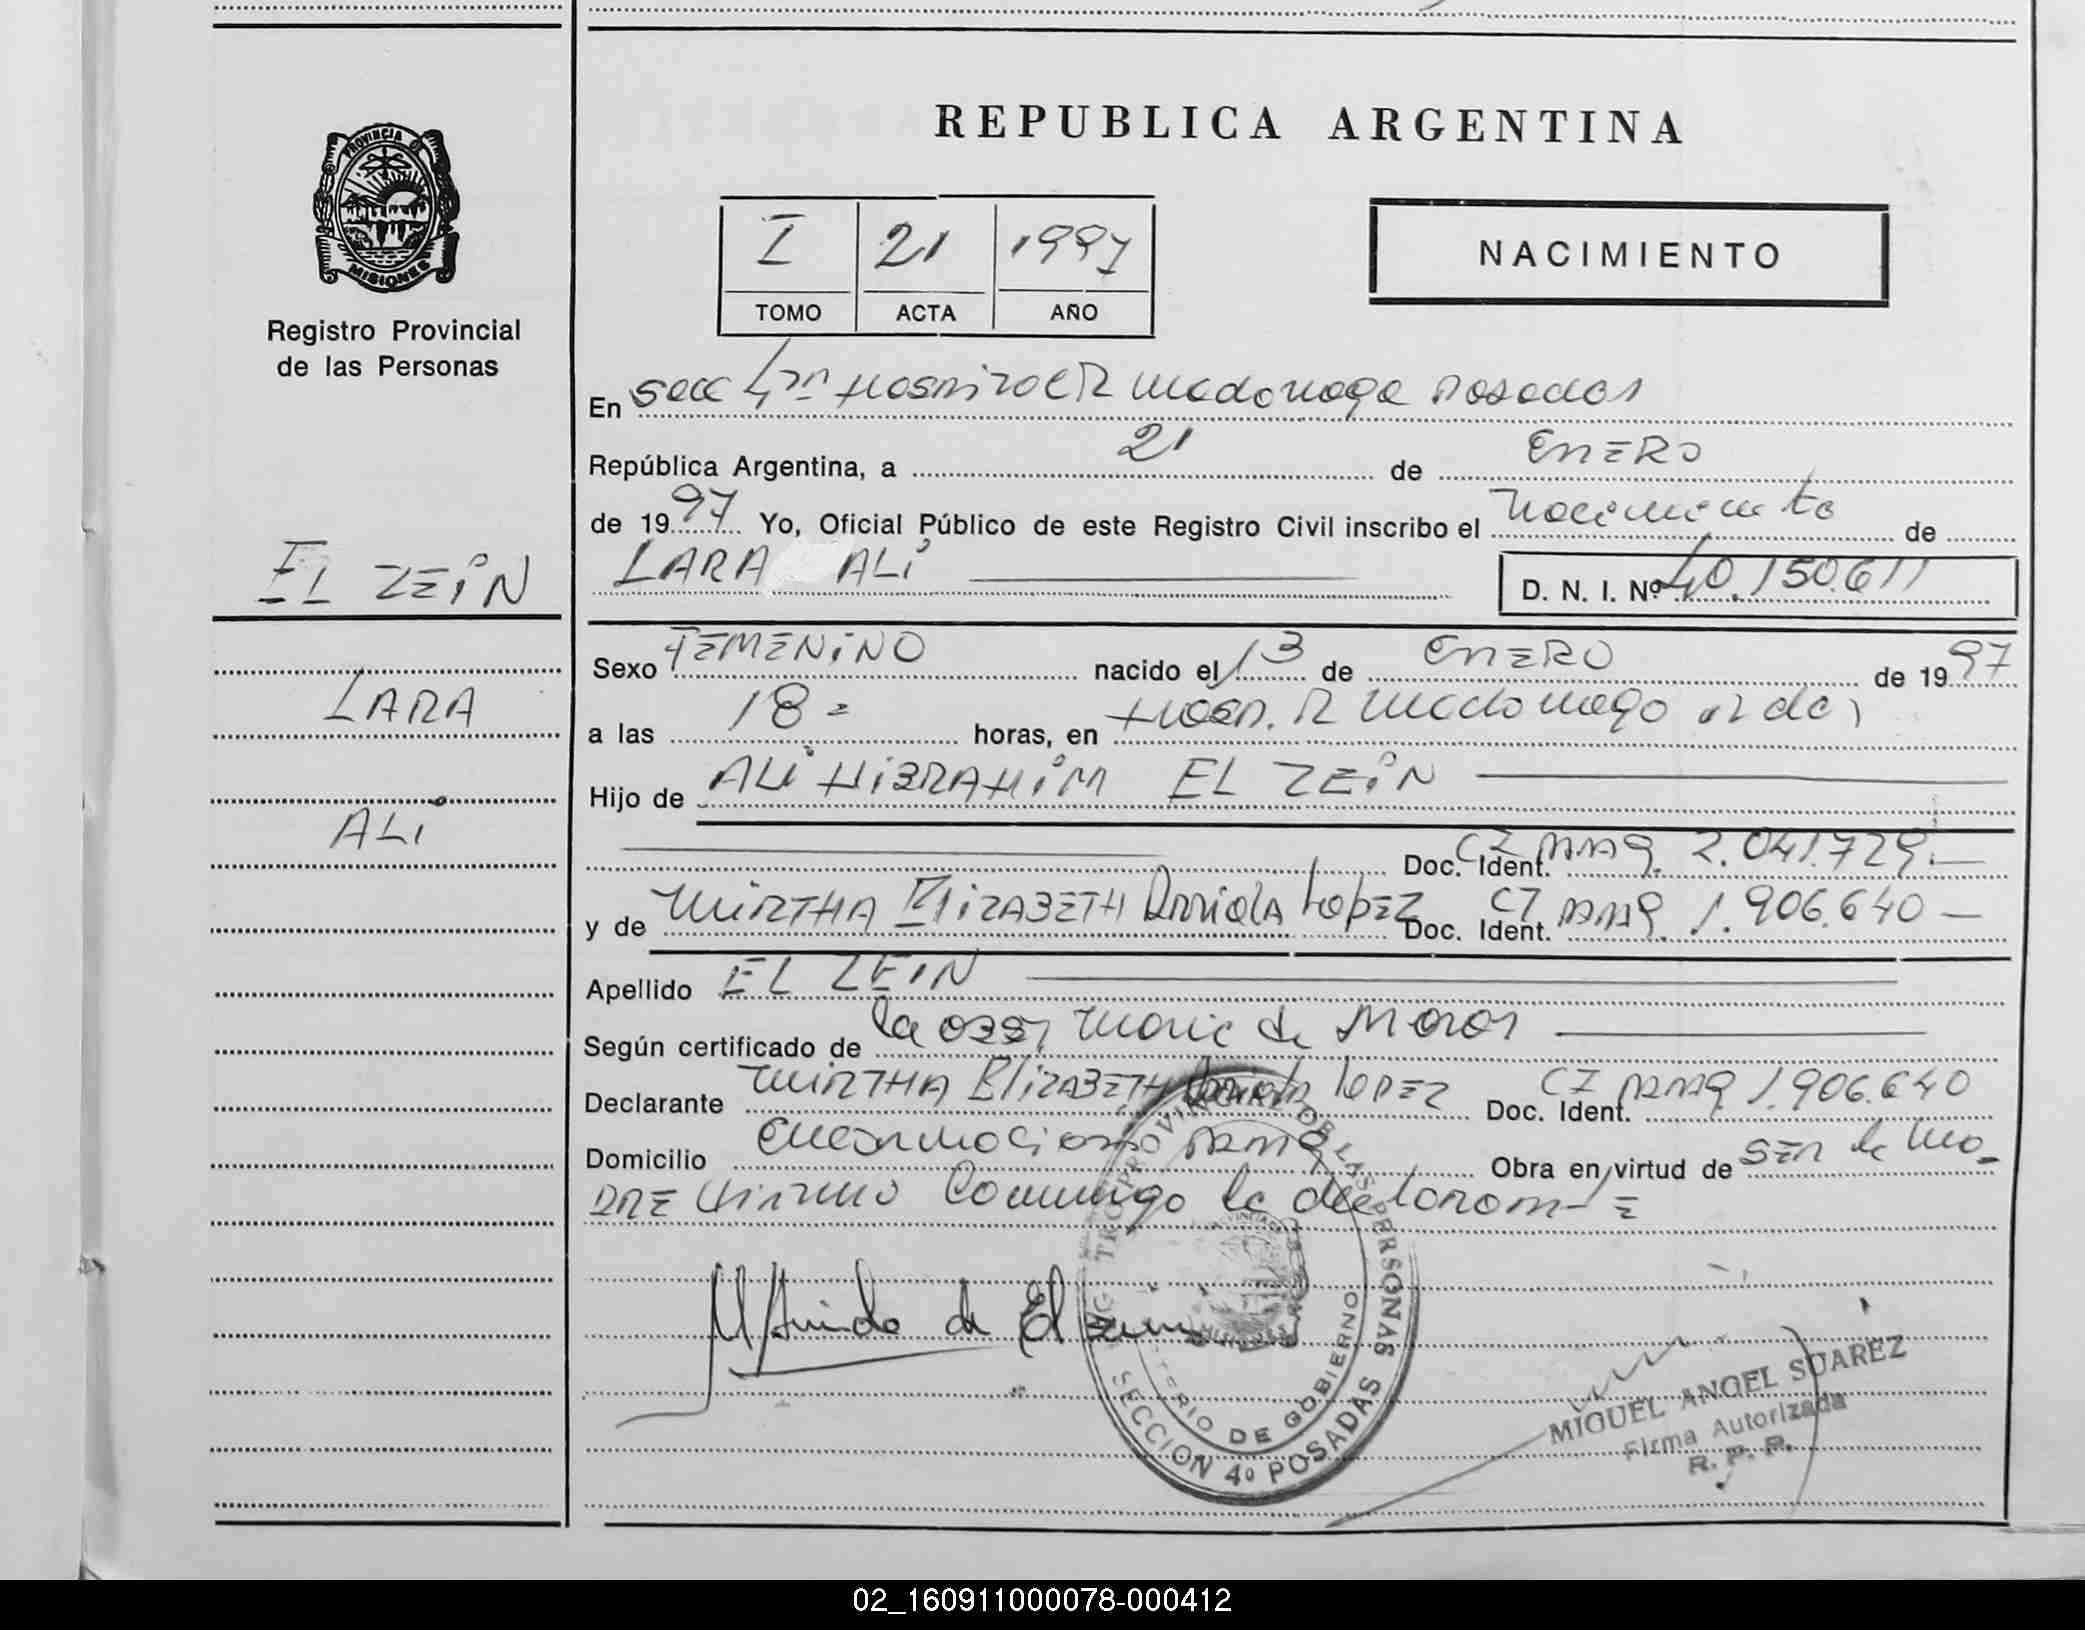 REPUBLICA ARGENTINA
PROVINCIA DE
MISIONES
Registro Provincial
de las Personas
I 21 1997
TOMO ACTA AÑO
NACIMIENTO
En Secc 4ta Hospital R Madariaga Posadas
República Argentina, a 21 de ENERO
de 1997 Yo, Oficial Público de este Registro Civil inscribo el nacimiento de
LARA ALI D. N. I. Nº 40.150.611
EL ZEIN
LARA
ALI
Sexo FEMENINO nacido el 13 de ENERO de 1997
a las 18 horas, en Hosp. R Madariaga
Hijo de ALI HIBRAHIM EL ZEIN
Doc. Ident. CI 2.041.729.—
y de MIRTHA ELIZABETH Arriola LopEZ Doc. Ident. CI 1.906.640 —
Apellido EL ZEIN
Según certificado de la Obst Maria de
Declarante MIRTHA ElizABETH Arriola LOPEZ Doc. Ident. CI 1.906.640
Domicilio Encarnacion Obra en virtud de SER la ma-
DRE Firmando Conmigo la declarante
de El
REGISTRO PROVINCIAL DE LAS PERSONAS
MINISTERIO DE GOBIERNO
SECCION 4º POSADAS
MIGUEL ANGEL SUAREZ
Firma Autorizada
R. P. P.
02_160911000078-000412